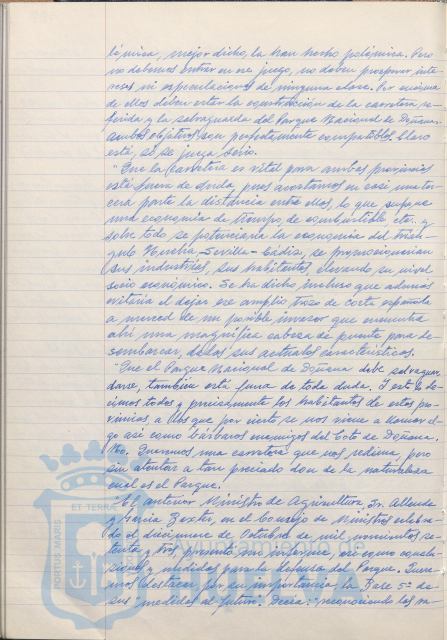 lémica, mejor dicho, la han hecho polémica. Pero
no debemos entrar en ese juego, no deben prosperar inte
reses ni especulaciones de ninguna clase. Por encima
de ellos deben estar la construcción de la carretera re-
ferida y la salvaguarda del Parque Nacional de Doñana.
Ambos objetivos son perfectamente compatibles, claro
está, si se juega serio.
"Que la carretera es vital para ambas provincias
está fuera de duda, pues acortamos en casi una ter
cera parte la distancia entre ellas, lo que supone
una economía de tiempo, de combustible etc. y
sobre todo se potenciaría la economía del trián-
gulo Huelva-Sevilla-Cádiz, se promocionarían
sus industrias, sus habitantes, elevando su nivel
socio económico. Se ha dicho incluso que además
evitaría el dejar ese amplio trozo de costa española
a merced de un posible invasor que encuentra
ahí una magnífica cabeza de puente para de-
sembarcar, dadas sus actuales características.
"Que el Parque Nacional de Doñana debe salvaguar
darse, también está fuera de toda duda. Y esto lo de
cimos todos y precisamente los habitantes de estas pro-
vincias, a los que por cierto, se nos viene a llamar al
go así como bárbaros enemigos del Coto de Doñana.
No. Queremos una carretera que nos redima, pero
sin atentar a tan preciado don de la naturaleza
cual es el Parque.
"El anterior Ministro de Agricultura, Sr. Allende
y García Baxter, en el Consejo de Ministros celebra
do el diecinueve de Octubre de mil novecientos se-
tenta y tres, presentó un informe,
y medidas para la defensa del Parque. Quere
mos destacar, por su importancia la Base 5ª de
sus "medidas al futuro". Decía: "reconociendo las ra-
PORTUS MARIS ET TERRAE
HUELVA